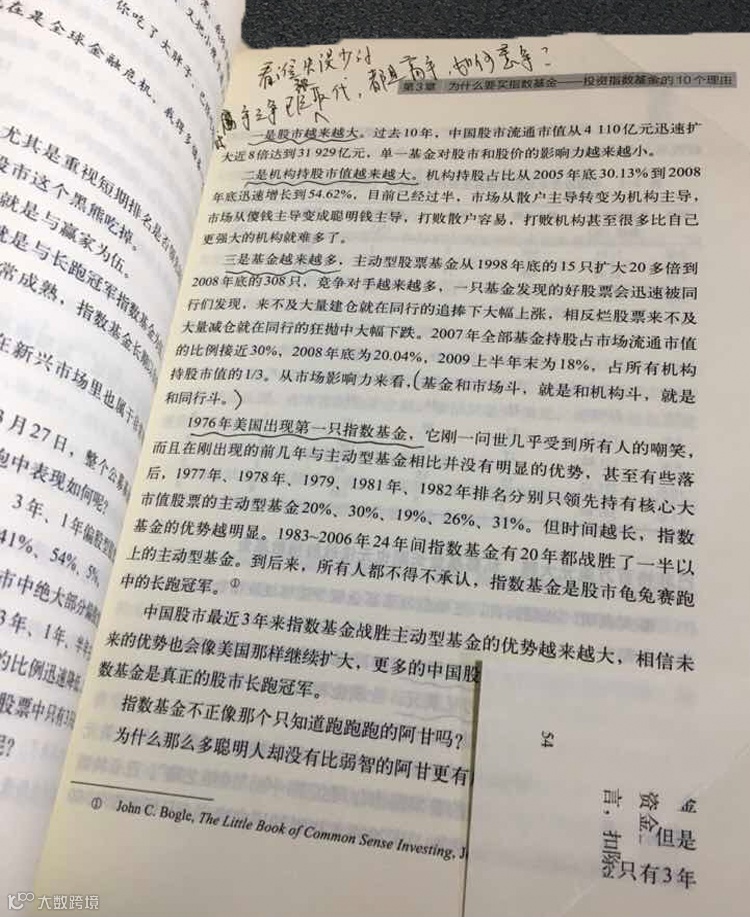 你吃了大脖子，已
又把小
在是全球金融危机，我得多
尤其是重视短期排名是否
股市这个黑熊吃掉。
就是与赢家为伍。
就是与长跑冠军指数基金为
常成熟，指数基金长期
在新兴市场里也属于
3月27日，整个公募
跑中表现如何呢？
3年、1年偏股型
41%、54%、5%、
市中绝大部分偏
3年、1年、半年
的比例迅速降低
股票中只有3
呢？
看谁失误少的
都是高手，如何竞争？
第3章 为什么要买指数基金——投资指数基金的10个理由
一是股市越来越大。过去10年，中国股市流通市值从4 110亿元迅速扩
大近8倍达到31 929亿元，单一基金对股市和股价的影响力越来越小。
二是机构持股市值越来越大。机构持股占比从2005年底30.13%到2008
年底迅速增长到54.62%，目前已经过半，市场从散户主导转变为机构主导，
市场从傻钱主导变成聪明钱主导，打败散户容易，打败机构甚至很多比自己
更强大的机构就难多了。
三是基金越来越多，主动型股票基金从1998年底的15只扩大20多倍到
2008年底的308只，竞争对手越来越多，一只基金发现的好股票会迅速被同
行们发现，来不及大量建仓就在同行的追捧下大幅上涨，相反烂股票来不及
大量减仓就在同行的狂抛中大幅下跌。2007年全部基金持股占市场流通市值
的比例接近30%，2008年底为20.04%，2009上半年末为18%，占所有机构
持股市值的1/3。从市场影响力来看，（基金和市场斗，就是和机构斗，就是
和同行斗。）
1976年美国出现第一只指数基金，它刚一问世几乎受到所有人的嘲笑，
而且在刚出现的前几年与主动型基金相比并没有明显的优势，甚至有些落
后，1977年、1978年、1979、1981年、1982年排名分别只领先持有核心大
市值股票的主动型基金20%、30%、19%、26%、31%。但时间越长，指数
基金的优势越明显。1983~2006年24年间指数基金有20年都战胜了一半以
上的主动型基金。到后来，所有人都不得不承认，指数基金是股市龟兔赛跑
中的长跑冠军。①
中国股市最近3年来指数基金战胜主动型基金的优势越来越大，相信未
来的优势也会像美国那样继续扩大，更多的中国股
数基金是真正的股市长跑冠军。
指数基金不正像那个只知道跑跑跑的阿甘吗？
为什么那么多聪明人却没有比弱智的阿甘更有
① John C. Bogle, The Little Book of Common Sense Investing, J
54
金
资金 但是
言，扣除 只有3年
大数跨境